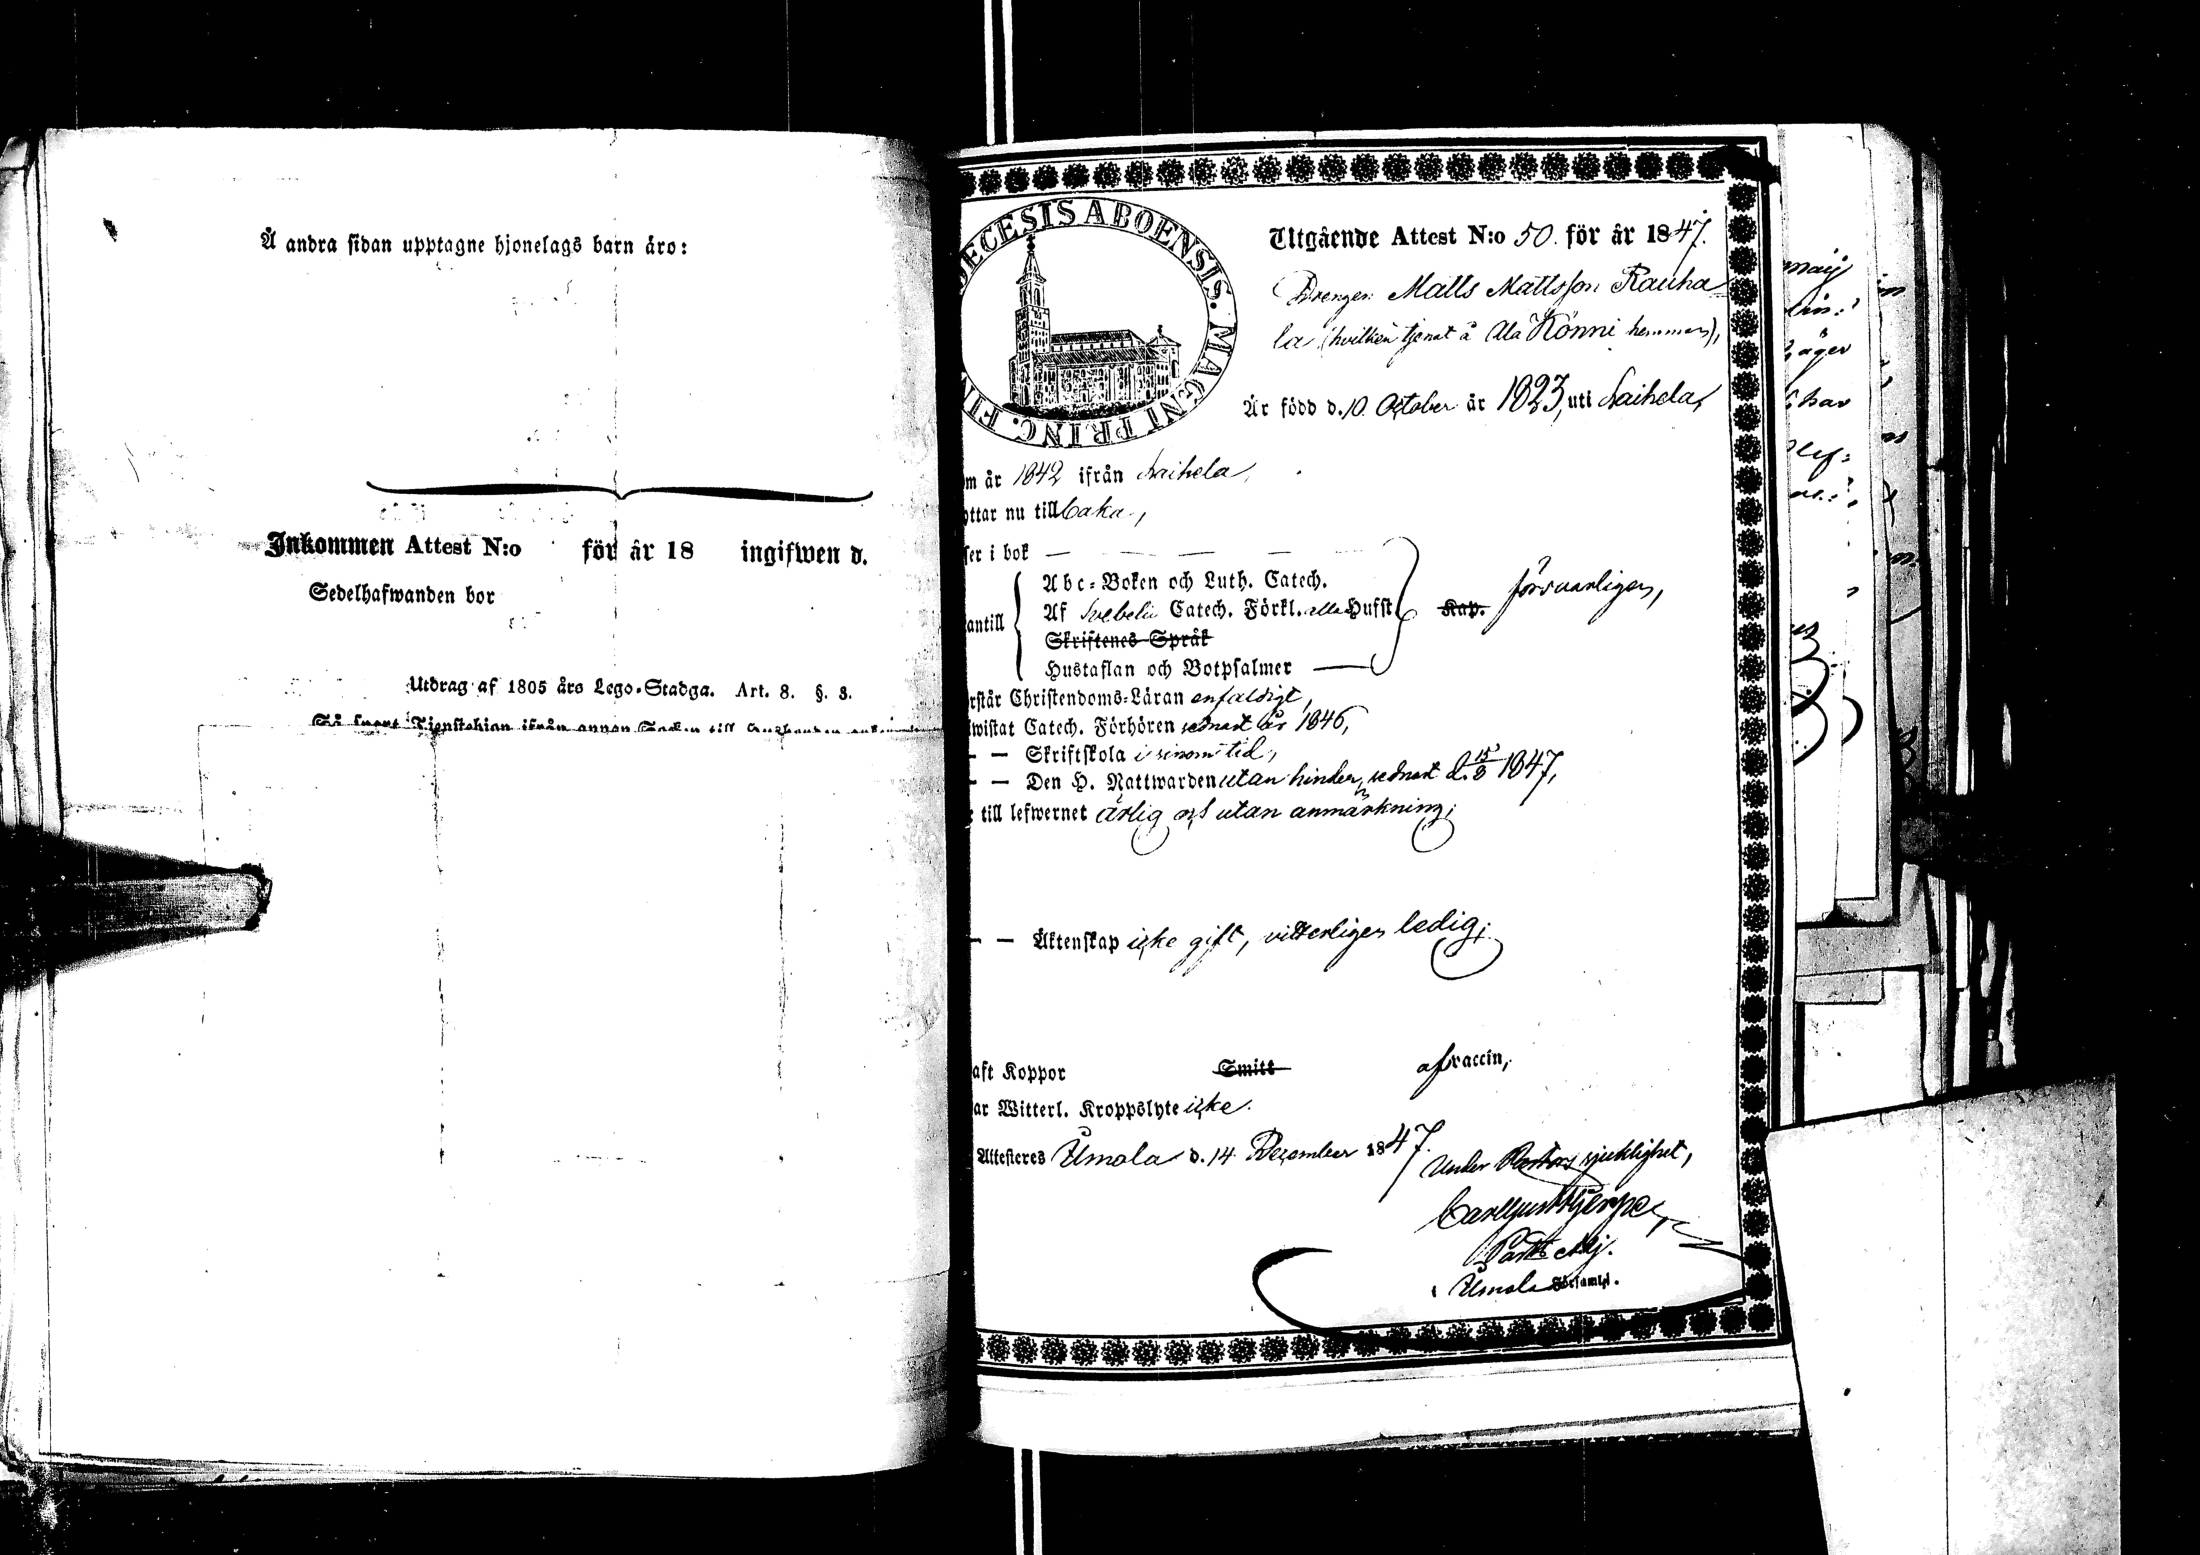 Å andra sidan upptagne hjonelags barn äro:
Inkommen Attest N:o för år 18 ingifwen d.
Sedelhafwanden bor
Utdrag af 1805 års Lego-Stadga. Art. 8. §. 3.
Så snart Tjenstehjon ifrån annan Socken till
DECESIS ABOENSIS. MAGNI PRINC. FIN
Utgående Attest N:o 50. för år 1847.
Drengen Matts Mattsson Rauha
la (hvilken tjenat å Ala Könni hemman),
Är född d. 10. October år 1823, uti Naihela,
m år 1842 ifrån Naihela,
ottar nu tillbaka,
ser i bok — — — — —
antill
Abc-Boken och Luth. Catech.
Af Svebelii Catech. Förkl. alla Hufst. Kap. försvarligen,
Skriftenes Språk
Hustaflan och Botpsalmer —
rstår Christendoms-Läran enfaldigt,
wistat Catech. Förhören sednast år 1846,
— — Skriftskola i sinom tid,
— — Den H. Nattwarden utan hinder, sednast d. 15/8 1847,
till lefwernet ärlig och utan anmärkning;
— — Äktenskap icke gift, vitterligen ledig;
aft Koppor Smitt af vaccin,
ar Witterl. Kroppslyte icke.
Attesteres Urmola d. 14 December 1847.
Under Pastors sjuklighet,
Past: Adj.
i Församl.
may
äger
har